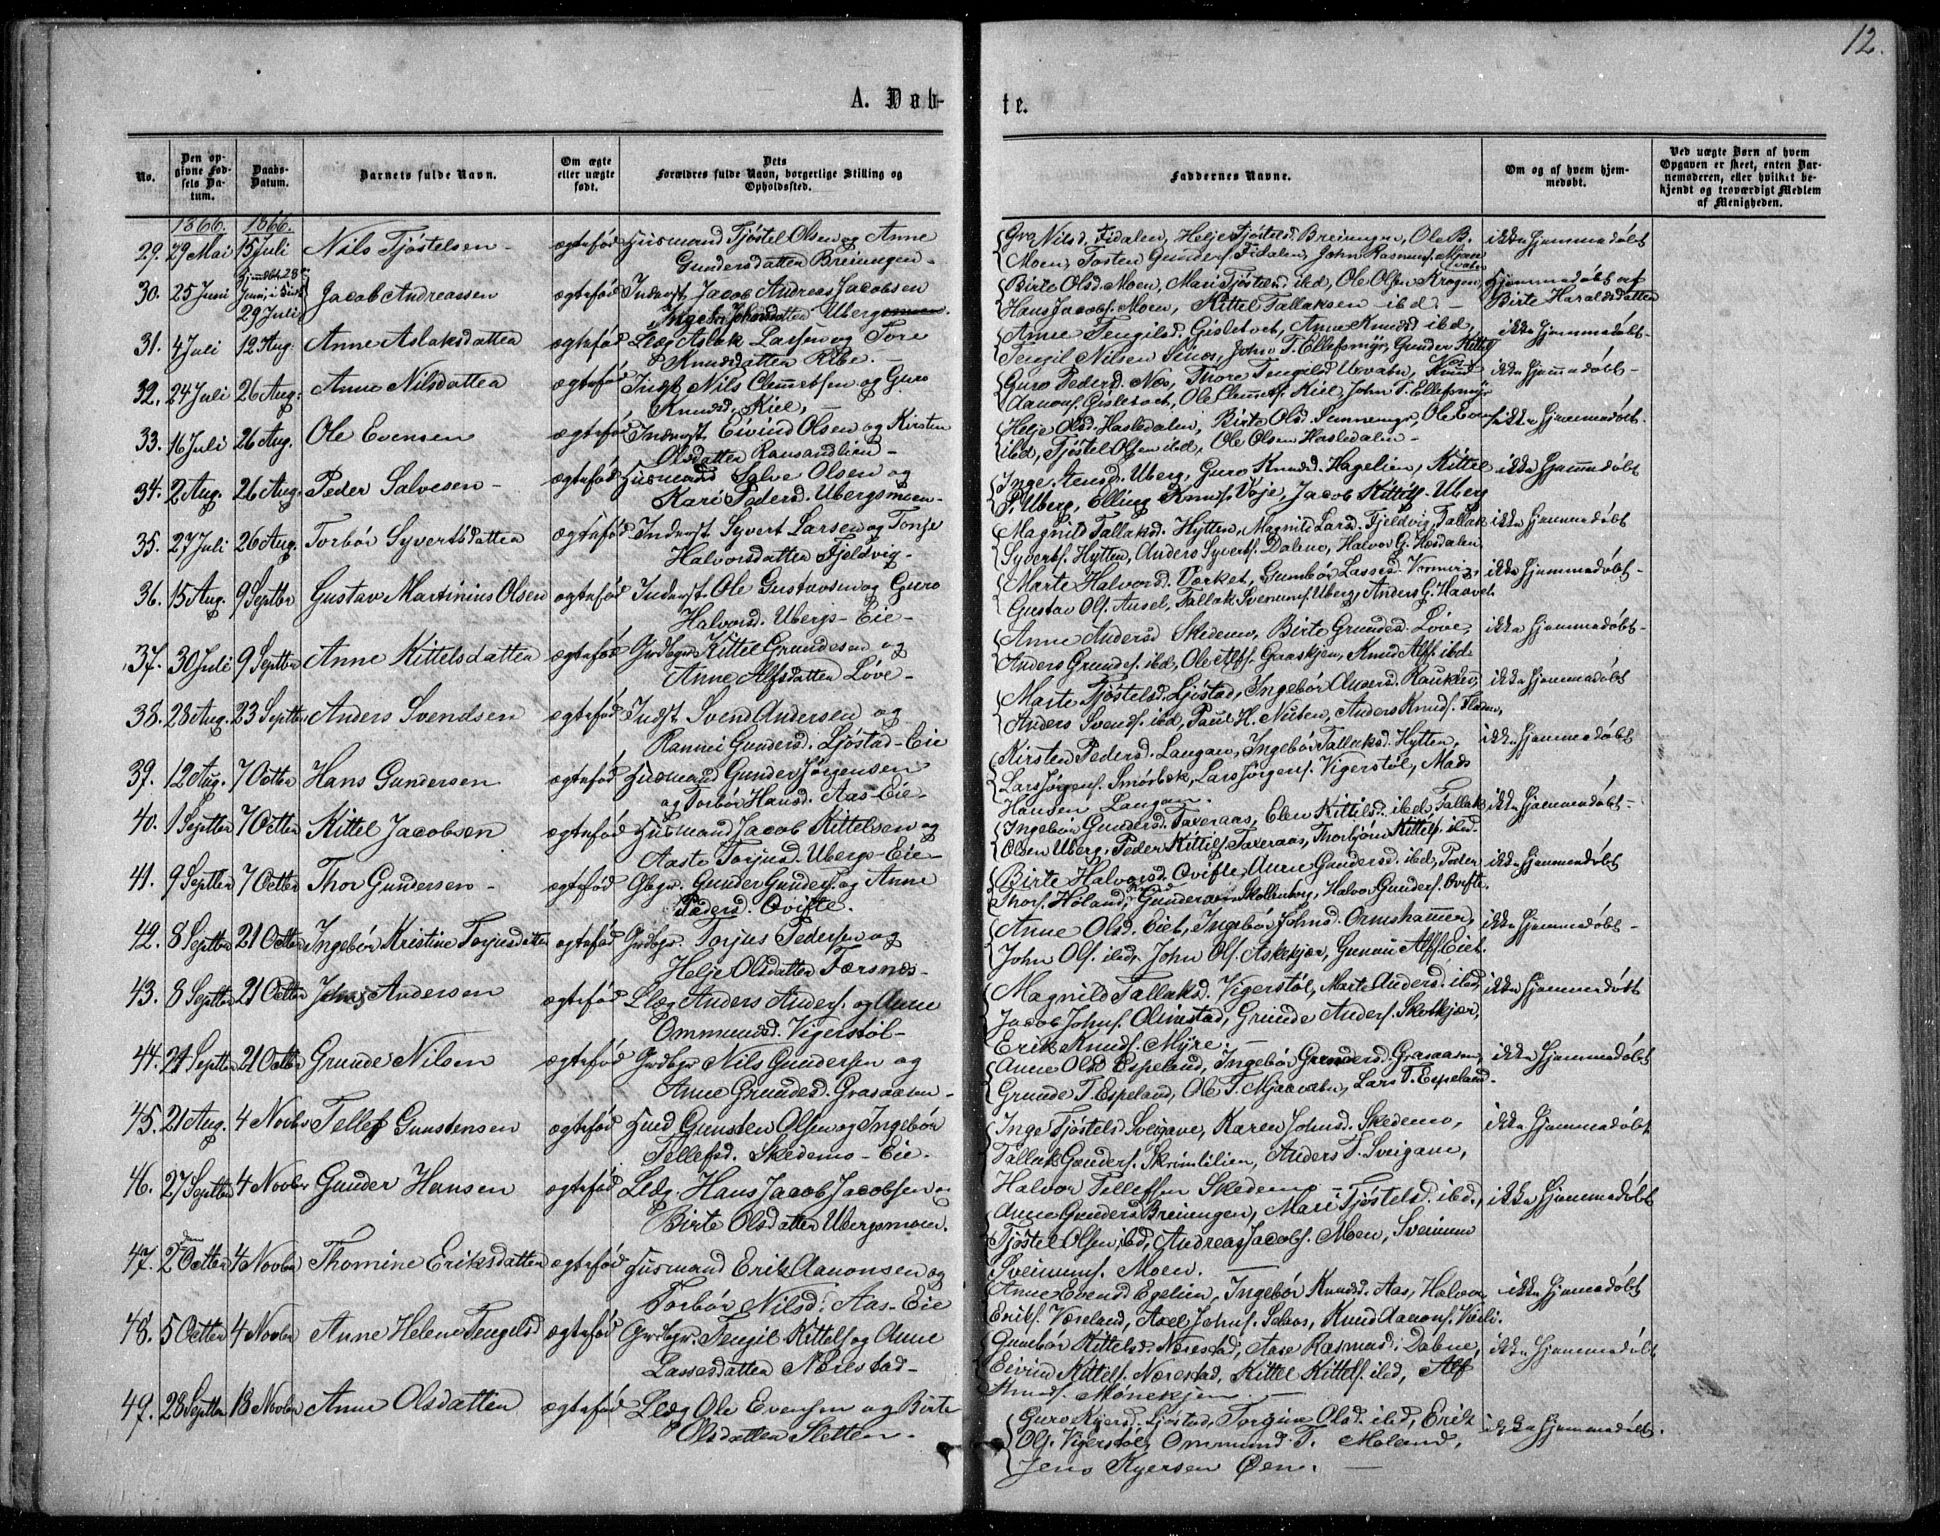 12.
A. Døb-
te.
No.
Den opgivne Fødsels Datum.
Daabs-Datum.
Barnets fulde Navn.
Om ægte eller uægte født.
Dets Forældres fulde Navn, borgerlige Stilling og Opholdssted.
Faddernes Navne.
Om og af hvem hjemmedøbt.
Ved uægte Børn af hvem Opgaven er skeet, enten Barnemoderen, eller hvilket bekjendt og troværdigt Medlem af Menigheden.
1866. 1866.
29. 29 Mai 15 Juli Nils Tjøstelsen - ægtefød Husmand Tjøstel Olsen og Anne
Gundersdatter Breiungen -
Nilsd. Fidalen, Helje Tjøstelsd Breiungen, Ole B.
Moen, Tosten Gunders. Fidalen, John Rasmus.
ikke hjemmedøbt
30. 25 Juni 29 Juli Jacob Andreassen ægtefød Inderst Jacob Andreas Jacobsen
Uberg
Birte Olsd. Moen, Mari Tjøstelsd ibd, Ole Olsen Krogen,
Hans Jacobs. Moen, Kittel Tallaksen ibd. -
hjemmedøbt af
Birte Haraldsdatter
31. 4 Juli 12 Aug. Anne Aslaksdatter ægtefød Læg Aslak Larsen og Tore
Knudsdatter Ribe. -
Anne Tengilsd. Gisletvet, Anne Knudsd ibd,
Tengil Nilsen Simos, John T. Ellefsmyr, Gunder Kittels
ikke hjemmedøbt
32. 24 Juli 26 Aug. Anne Nilsdatter ægtefød Indst Nils Clemetsen og Guro
Knudsd, Kiel, -
Guro Peders. Næs, Thore Tengilsd Urvatn, Knud
Aanons. Gisletvet, Ole Clemets. Kiel, John T. Ellefsmyr
ikke hjemmedøbt -
33. 16 Juli 26 Aug. Ole Evensen ægtefød Inderst Eivind Olsen og Kirsten
Olsdatter Ransandlien -
Helje Olsd. Hasledalen, Birte Olsd.
ibd, Tjøstel Olsen ibd, Ole Olsen Hasledalen -
ikke hjemmedøbt.
34. 2 Aug. 26 Aug. Peder Salvesen - ægtefød Husmand Salve Olsen og
Kari Pedersd. Ubergsmoen -
Inge Jensd. Uberg, Guro Knudsd. Hagelien, Kittel
P. Uberg, Elling Knuds. Voje, Jacob Kittels. Uberg
ikke hjemmedøbt
35. 27 Juli 26 Aug. Torbør Syvertsdatter ægtefød Inderst Syvert Larsen og Tonje
Halvorsdatter Fjeldvig -
Magnild Tallaksd. Hytten, Magnild Larsd. Fjeldvig, Tallak
Syverts. Hytten, Anders Syverts. Dalene, Halvor G. Hasdalen
ikke hjemmedøbt
36. 15 Aug. 9 Septbr Gustav Martinius Olsen ægtefød Inderst Ole Gustavsen og Guro
Halvorsd. Ubergs-Eie -
Marte Halvorsd. Vørket, Gumbør Lassesd.
Gustav Ols. Ausel, Tallak Uberg, Anders G. Haavet
ikke hjemmedøbt -
37. 30 Juli 9 Septbr Anne Kittelsdatter ægtefød Grdbgr Kittel Grundesen og
Anne Alfsdatter Løve -
Anne Andersd Skedemo, Birte Grundesd. Løve,
Anders Grundes. ibd, Ole Alfs. Gaaskjen, Knud Alfs. ibd
ikke hjemmedøbt -
38. 28 Aug. 23 Septbr Anders Svendsen ægtefød Indst. Svend Andersen og
Rannei Gundersd. Ljøstad-Eie
Marte Tjøstelsd. Ljøstad, Ingebør Andersd. Raukleiv,
Anders Svends. ibd, Paul H. Nuten, Anders Knuds. Fladen,
ikke hjemmedøbt
39. 12 Aug. 7 Octbr Hans Gundersen ægtefød Husmand Gunder Jørgensen
og Torbør Hansd. Aas-Eie -
Kirsten Pedersd. Langaen, Ingebør Tallaksd. Hytten,
Lars Jørgens. Smørbæk, Lars Jørgens. Vigerstøl, Mads
Hansen Langaen.
ikke hjemmedøbt
40. 1 Septbr 7 Octbr Kittel Jacobsen ægtefød Husmand Jacob Kittelsen og
Aaste Torjusd. Ubergs-Eie -
Ingebør Gundersd. Taxeraas, Elen Kittilsd. ibd, Tallak
Olsen Uberg, Peder Kittils. Taxeraas, Thorbjørn Kittils. ibd.
ikke hjemmedøbt -
41. 9 Septbr 7 Octbr Thor Gundersen - ægtefød Gbgr. Gunder Gunders. og Anne
Pedersd. Ovifte.
Birte Halvorsd. Ovifte, Anne Gundersd. ibd, Peder
Thors. Høland, Gunder Skollenborg, Halvor Gunders. Ovifte.
ikke hjemmedøbt
42. 8 Septbr 21 Octbr Ingebør Kristine Torjusdatter ægtefød Grdbgr. Torjus Pedersen og
Helje Olsdatter Færsnes -
Anne Olsd. Eiet, Ingebør Johnsd. Ormshammer,
John Ols. ibd, John Ols. Askekjær, Gunnar Alfs Eiet.
ikke hjemmedøbt -
43. 8 Septbr 21 Octbr Johns Andersen ægtefød Læg Anders Anders. og Anne
Ommunsd. Vigerstøl -
Magnild Tallaksd. Vigerstøl, Marte Andersd. ibd,
Jacob Johns. Olimstad, Grunde Anders. Skotkjær,
Erik Knuds. Myre. -
ikke hjemmedøbt
44. 24 Septbr 21 Octbr Grunde Nilsen ægtefød Grdbgr Nils Gundersen og
Anne Grundesd. Grasaasen -
Anne Olsd Espeland, Ingebør Grundesd. Grasaasen
Grunde T. Espeland, Ole T. Mjaavatn, Lars T. Espeland.
ikke hjemmedøbt
45. 21 Aug. 4 Novbr Tellef Gunstensen ægtefød Husd Gunsten Olsen og Ingebør
Tellefsd. Skedemo-Eie.
Inge Tjøstels. Sveigane, Karen Johnsd. Skedemo,
Tallak Gunders. Skrimlilien, Anders T. Sveigane,
Halvor Tellefsen Skedemo -
ikke hjemmedøbt
46. 27 Septbr 4 Novbr Gunder Hansen ægtefød Læg Hans Jacob Jacobsen og
Birte Olsdatter Ubergsmoen.
Anne Gunders Breiungen, Mari Tjøstelsd. ibd.,
Tjøstel Olsen ibd, Andreas Jacobs. Moen, Sveinum
Sveinums. Moen. -
ikke hjemmedøbt
47. 2 Octbr 4 Novbr Thomine Eriksdatter ægtefød Husmand Erik Aanonsen og
Torbør Nilsd. Aas-Eie
Anne Evensd Egelien, Ingebør Knudsd. Aas, Halvor
Eriks. Væseland, Axel Johns. Selaas, Knud Aanons. Væsli.
ikke hjemmedøbt
48. 5 Octbr 4 Novbr Anne Helene Tengelsd ægtefød Grdbgr. Tengil Kittels og Anne
Lassesdatter Nærestad -
Gunbør Kittelsd. Nærestad, Aase Rasmusd. Dabne,
Eivind Kittels. Nærestad, Kittel Kittels. ibd, Alf
Knuds. Mønekjen. -
ikke hjemmedøbt
49. 28 Septbr 18 Novbr Anne Olsdatter ægtefød Læg Ole Evensen og Birte
Olsdatter Sletten -
Guro Kjersd. Ljøstad, Torgun Olsd. ibd, Erik
Ols. Vigerstøl, Ommund T. Moland,
Jens Kjersen Øen. -
ikke hjemmedøbt.